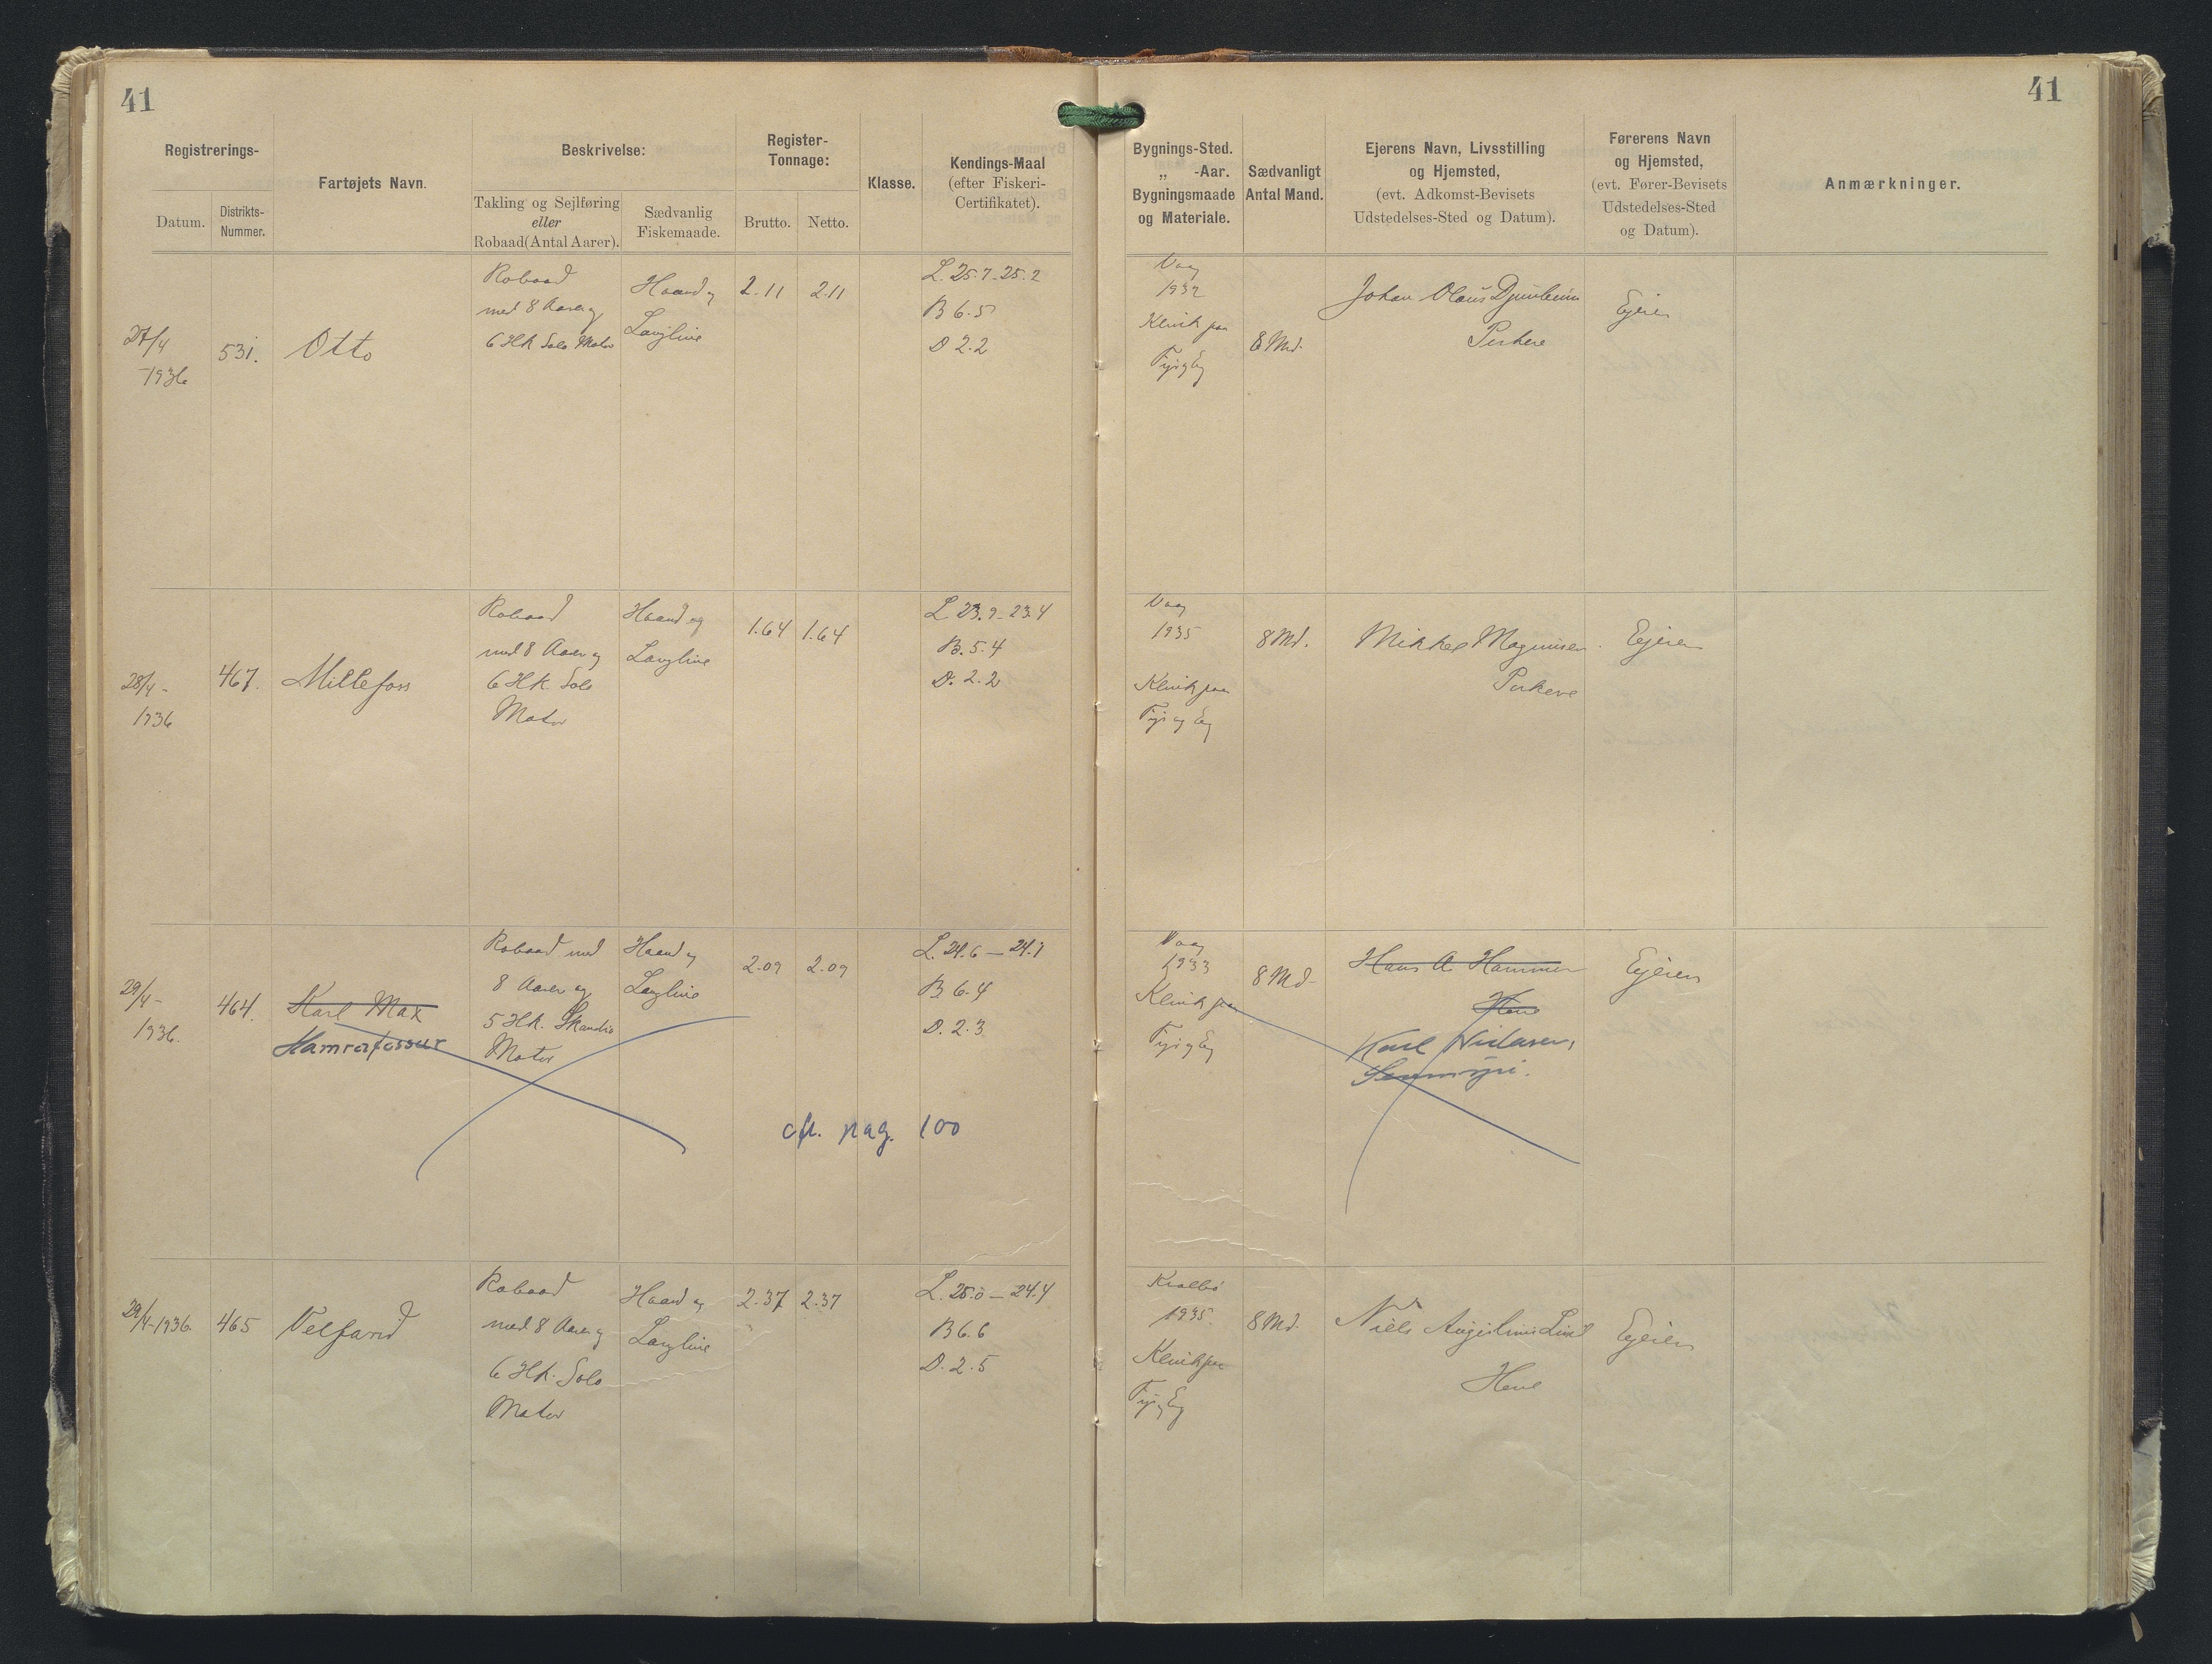 41
41
Registrerings-
Datum.
Distrikts-
Nummer.
Fartøjets Navn.
Beskrivelse:
Takling og Sejlføring
eller
Robaad(Antal Aarer).
Sædvanlig
Fiskemaade.
Register-
Tonnage:
Brutto.
Netto.
Klasse.
Kendings-Maal
(efter Fiskeri-
Certifikatet).
Bygnings-Sted.
„ -Aar.
Bygningsmaade
og Materiale.
Sædvanligt
Antal Mand.
Ejerens Navn, Livsstilling
og Hjemsted,
(evt. Adkomst-Bevisets
Udstedelses-Sted og Datum).
Førerens Navn
og Hjemsted,
(evt. Fører-Bevisets
Udstedelses-Sted
og Datum).
Anmærkninger.
27/4
-1936
531.
Otto
Robaad
med 8 Aarer og
6 HK Solo Motor
Haand og
Langline
2.11
2.11
L. 25.7-25.2
B 6.5
D 2.2
Vaag
1932
Klink paa
Fyr og Eg
8 Md.
Johan Olaus
Porkere
Ejeren
28/4-
1936
467.
Millefoss
Robaad
med 8 Aarer og
6 HK. Solo
Motor
Haand og
Langline
1.64
1.64
L 23.9-23.4
B. 5.4
D. 2.2
Vaag
1935
Klink paa
Fyr og Eg
8 Md.
Mikkel Magnusen
Porkere
Ejeren
29/4-
1936.
464.
Karl Max
Hamrafossur
Robaad med
8 Aarer og
5 HK. Skandia
Motor
Haand og
Langline
2.09
2.09
L. 24.6 — 24.1
B 6.4
D. 2.3
cfr. pag. 100
Vaag
1933
Klink paa
Fyr og Eg
8 Md.
Hans A. Hammer
Hove
Karl Nielsen,
Ejeren
29/4-1936.
465
Velfard
Robaad
med 8 Aarer og
6 HK. Solo
Motor
Haand og
Langline
2.37
2.37
L. 25.0 — 24.4
B 6.6
D. 2.5
Kvalbø
1935.
Klink paa
Fyr og Eg
8 Md.
Niels Augustinus
Hove
Ejeren